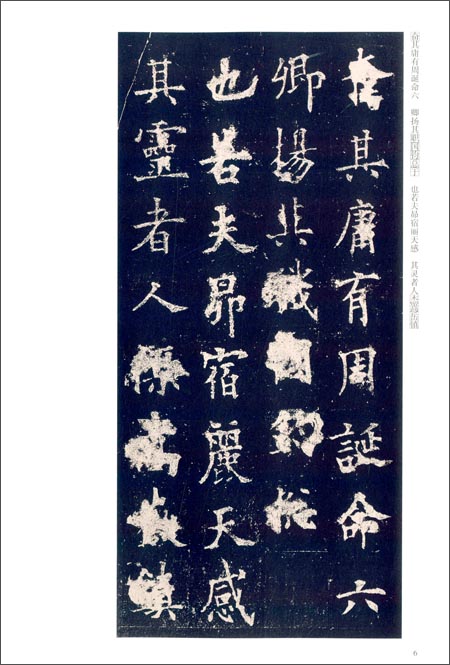 其庸有周誕命六
卿揚其職國鈞
也若夫昴宿麗天感
其靈者人傑嵩嶽鎮
其庸有周诞命六　卿扬其　也若夫昴宿丽天感　其灵者人
6